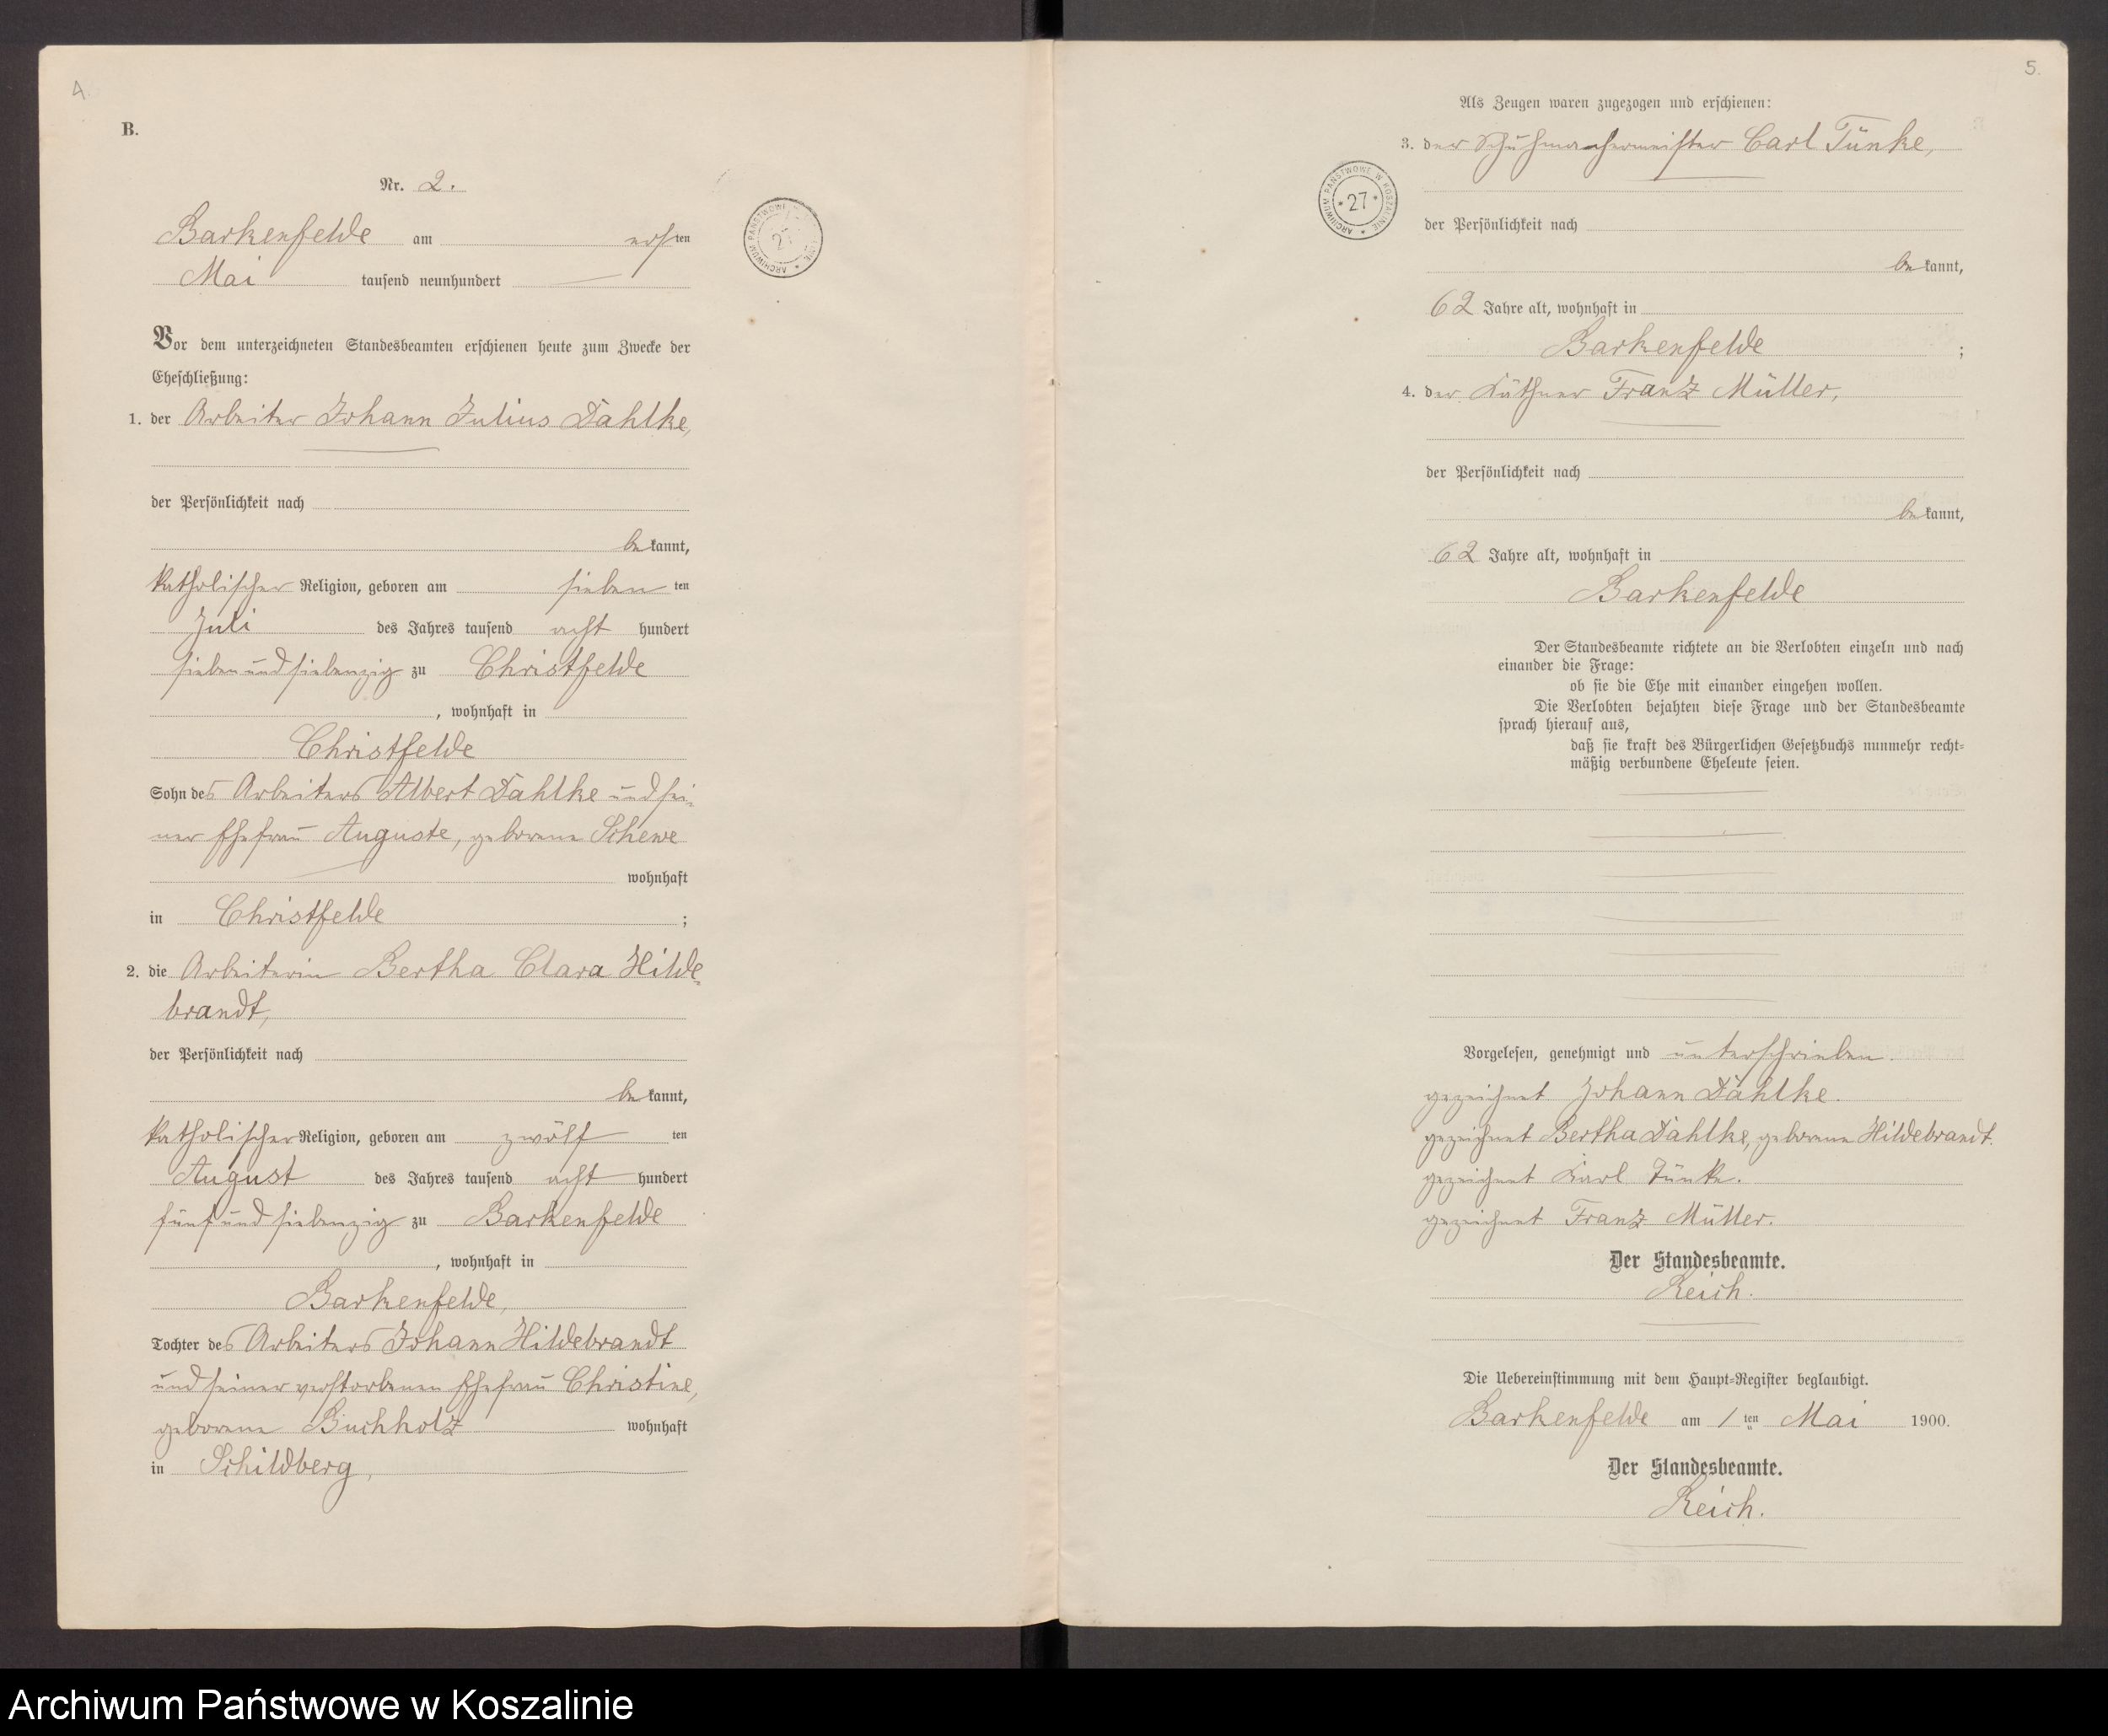 4
B.
Nr. 2.
Barkenfelde am ersten
Mai tausend neunhundert
Vor dem unterzeichneten Standesbeamten erschienen heute zum Zwecke der
Eheschließung:
1. der Arbeiter Johann Julius Dahlke,
der Persönlichkeit nach
bekannt,
katholischer Religion, geboren am siebenten
Juli des Jahres tausend acht hundert
siebenundsiebenzig zu Christfelde
, wohnhaft in
Christfelde
Sohn des Arbeiters Albert Dahlke und sei-
ner Ehefrau Auguste, geborene Schewe
wohnhaft
in Christfelde ;
2. die Arbeiterin Bertha Clara Hilde-
brandt,
der Persönlichkeit nach
bekannt,
katholischer Religion, geboren am zwölften
August des Jahres tausend acht hundert
fünfundsiebenzig zu Barkenfelde
, wohnhaft in
Barkenfelde,
Tochter des Arbeiters Johann Hildebrandt
und seiner verstorbenen Ehefrau Christine,
geborene Buchholz wohnhaft
in Schildberg,
ARCHIWUM PAŃSTWOWE
5.
Als Zeugen waren zugezogen und erschienen:
3. der Schuhmachermeister Carl Tünke,
ARCHIWUM PAŃSTWOWE W KOSZALINIE * 27 *
der Persönlichkeit nach
bekannt,
62 Jahre alt, wohnhaft in
Barkenfelde ;
4. der Käthner Franz Müller,
der Persönlichkeit nach
bekannt,
62 Jahre alt, wohnhaft in
Barkenfelde
Der Standesbeamte richtete an die Verlobten einzeln und nach
einander die Frage:
ob sie die Ehe mit einander eingehen wollen.
Die Verlobten bejahten diese Frage und der Standesbeamte
sprach hierauf aus,
daß sie kraft des Bürgerlichen Gesetzbuchs nunmehr recht-
mäßig verbundene Eheleute seien.
Vorgelesen, genehmigt und unterschrieben.
gezeichnet Johann Dahlke.
gezeichnet Bertha Dahlke, geborene Hildebrandt.
gezeichnet Karl Tünke.
gezeichnet Franz Müller.
Der Standesbeamte.
Reich.
Die Uebereinstimmung mit dem Haupt-Register beglaubigt.
Barkenfelde am 1ten Mai 1900.
Der Standesbeamte.
Reich.
Archiwum Państwowe w Koszalinie